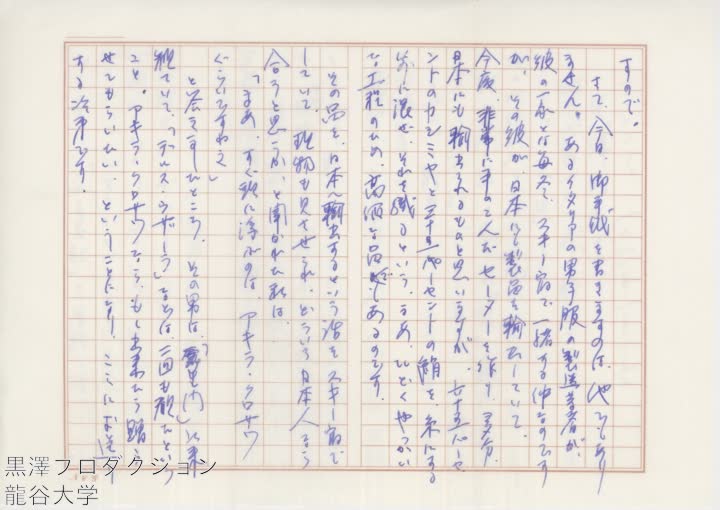 すので。
さて、今日、御手紙を書きますのは、他でもあり
ません。あるイタリアの男子服の製造業者が、
彼の一家とは毎冬、スキー宿で一緒する仲なのです
が、その彼が、日本にも製品を輸出していて、
今度、非常に手のこんだセーターを作り、多分、
日本にも輸出されるものと思いますが、七十五パーセ
ントのカシミヤと二十五パーセントの絹を糸にする
前に混ぜ、それを織るという、まあ、ひどくやっかい
な工程のため、高価な品でもあるのです。
その品を、日本へ輸出するという話を、スキー宿で
していて、現物も見させられ、どういう日本人なら
合うと思うか、と聞かれた私は、
「まあ、すぐ頭に浮ぶのは、アキラ・クロサワ
ぐらいですねえ」
と答えましたところ、その男は、「羅生門」以来
観ていて、「デルス・ウザーラ」などは、二回も観たという
こと。アキラ・クロサワなら、もし出来たら贈ら
せてもらいたい、ということになり、ここにお送り
する次第です。
黒澤プロダクション
龍谷大学